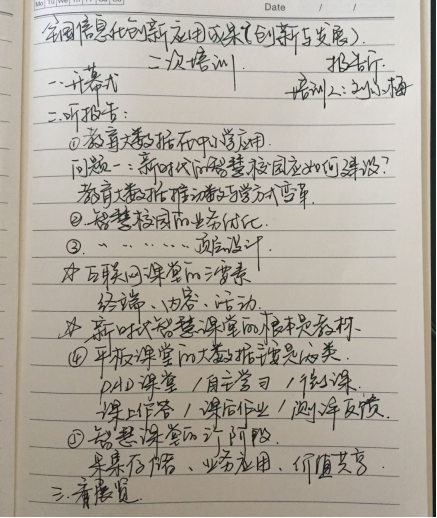 Mo Tu We Th Fr Sa Su Date / /
全国信息化创新应用成果(创新与发展)
二次培训. 报告厅.
一.开幕式 培训人:刘小梅
二.听报告:
①教育大数据在中小学应用.
问题一:新时代的智慧校园应如何建设?
教育大数据推动教与学方式变革
②智慧校园的业务优化.
③ 〃 ‥‥‥ 顶层设计.
☆互联网课堂的三要素
终端、内容、活动.
☆新时代智慧课堂的根本是教材.
④平板课堂的大数据主要是六类.
PAD课堂/自主学习/微课.
课上作答/课后作业/测评反馈.
⑤智慧课堂的三阶段
采集存储、业务应用、价值共享.
三.看展览.